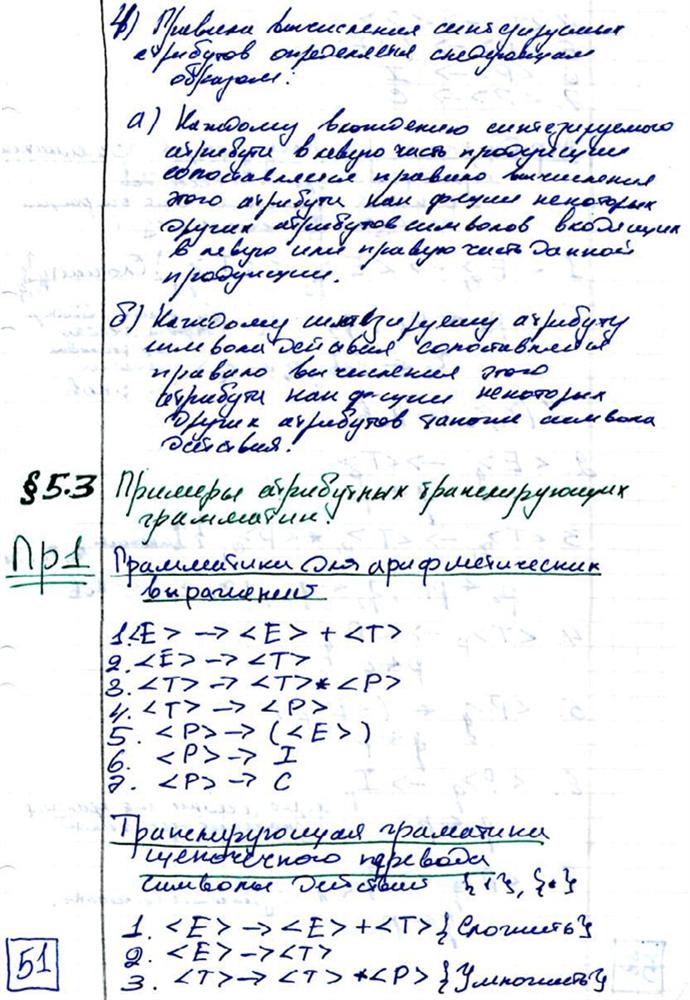 4) Правила вычисления синтезируемых
атрибутов определяются следующим
образом:
а) Каждому вхождению синтезируемого
атрибута в левую часть продукции
сопоставляется правило вычисления
этого атрибута как фкции некоторых
других атрибутов символов входящих
в левую или правую часть данной
продукции.
б) Каждому синтезируему атрибуту
символа действия сопоставляется
правило вычисления этого
атрибута как фкции некоторых
других атрибутов символа
действия.
§5.3 Примеры атрибутных транслирующих
грамматик.
Пр1 Грамматики для арифметических
выражений
1. <E> → <E> + <T>
2. <E> → <T>
3. <T> → <T> * <P>
4. <T> → <P>
5. <P> → (<E>)
6. <P> → I
7. <P> → C
Транслирующая граматика
цепочечного перевода
символы действий {+}, {*}
1. <E> → <E> + <T> {Сложить}
2. <E> → <T>
3. <T> → <T> * <P> {Умножить}
51